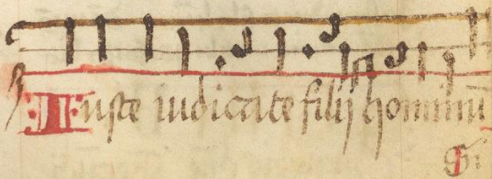 Iuste iudicate filij hominū
Si